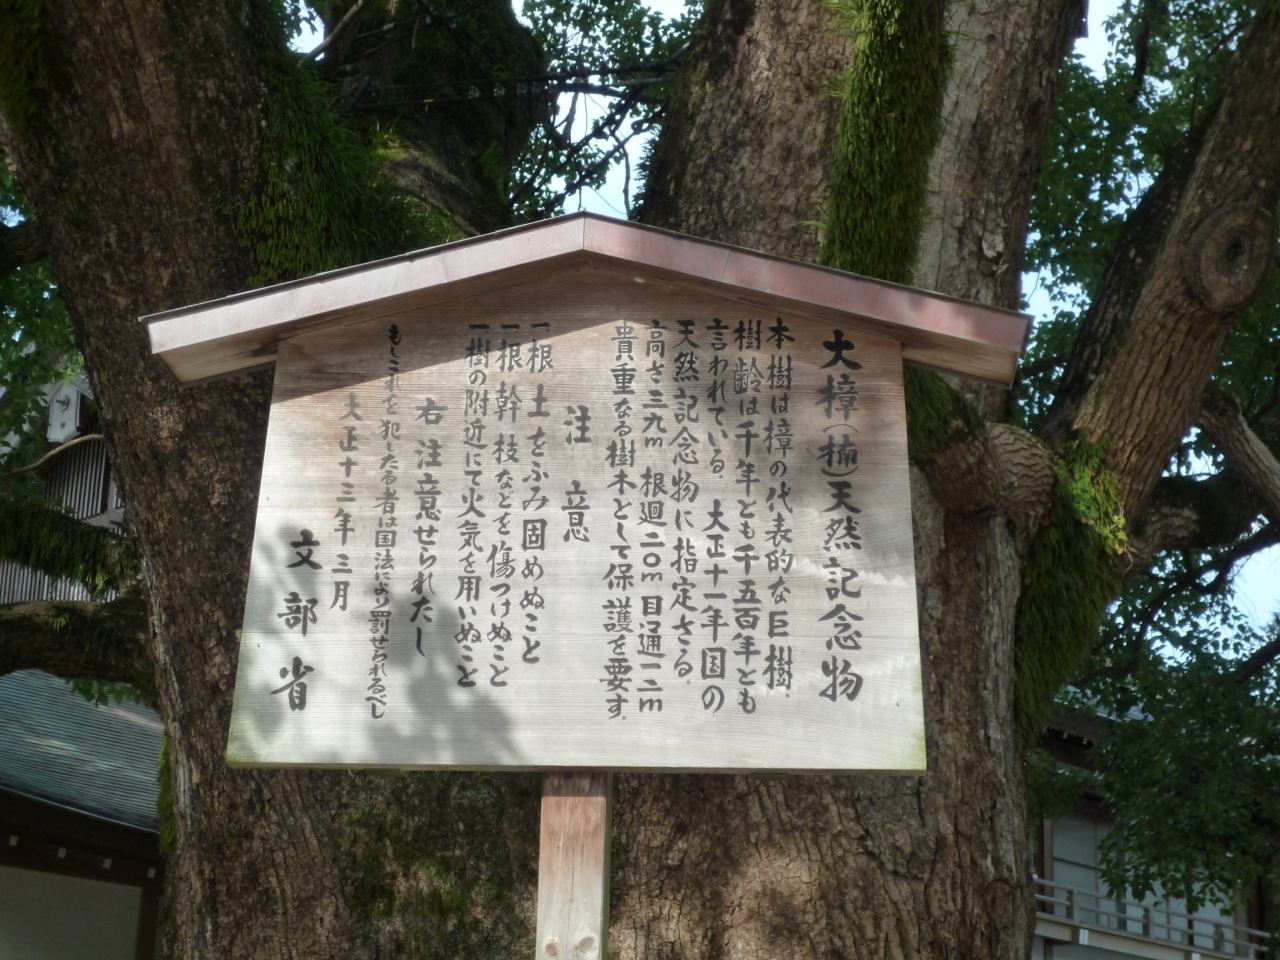 大樟(楠)天然記念物
本樹は樟の代表的な巨樹.
樹齢は千年とも千五百年とも
言われている. 大正十一年国の
天然記念物に指定さる.
高さ三九m 根廻二〇m 目通一二m
貴重なる樹木として保護を要す.
注意
一根土をふみ固めぬこと
一根幹枝などを傷つけぬこと
一樹の附近にて火気を用いぬこと
右注意せられたし
もしこれを犯したる者は国法により罰せられるべし
大正十三年三月
文部省